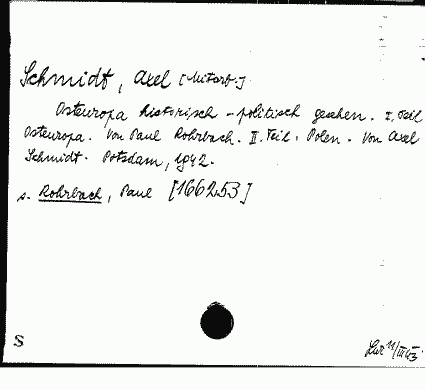 Schmidt, Axel [Mitarb.]
Osteuropa historisch-politisch gesehen. I. Teil
Osteuropa. Von Paul Rohrbach. II. Teil: Polen. Von Axel
Schmidt. Potsdam, 1942.
s. Rohrbach, Paul [166253]
S